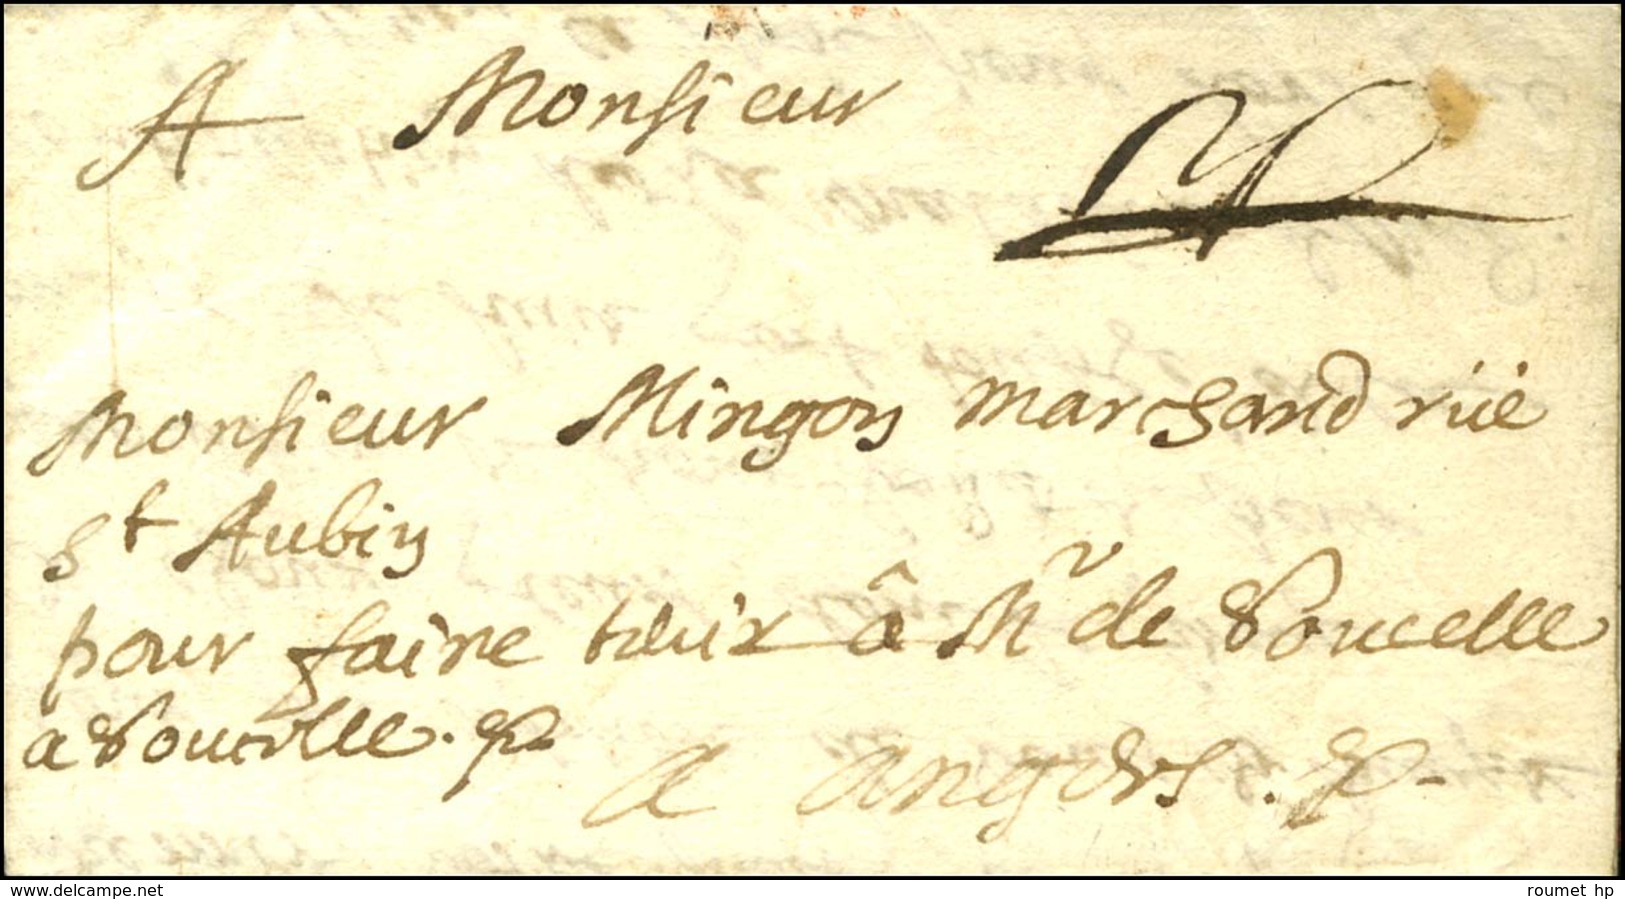 A Monsieur
Monsieur Mingon marchand rüe
St Aubin
pour faire tenir â Mr de Voucelle
a Voucelle. &
a angers. &
www.delcampe.net
roumet hp